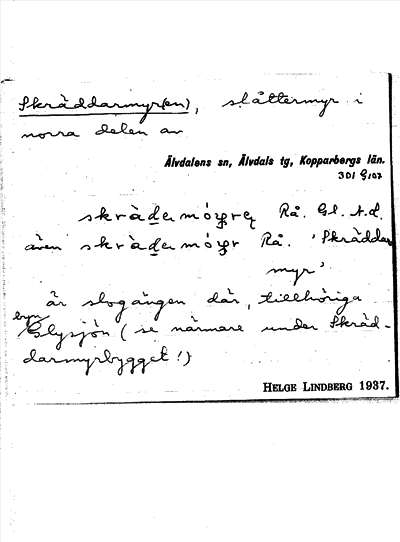 Skräddarmyr(en), slåttermyr i
norra delen av
Älvdalens sn, Älvdals tg, Kopparbergs län.
skràdermóyreɳ Rå. Gl. N.d.
även skràdermóyr Rå. 'Skräddar
myr'
är slogången där, tillhöriga
byn
Glysjön (se närmare under Skräd-
darmyrbygget!)
HELGE LINDBERG 1937.